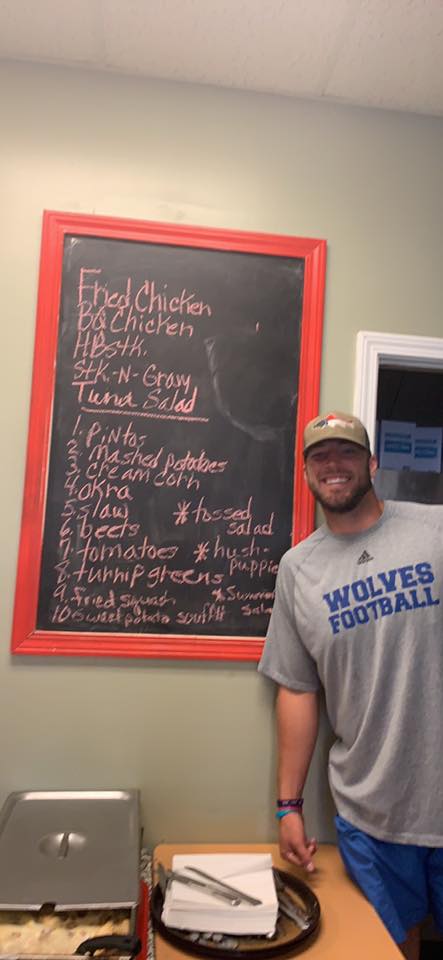 Fried Chicken
BQ Chicken
HBstk.
Stk-N-Gravy
Tuna Salad
1. pintos
2. mashed potatoes
3. cream corn
4. okra
5. slaw
*tossed
salad
6. beets
7. tomatoes
*hush-
puppie
8. turnip greens
9. fried squash
*Summer
Sala
10. sweet potato souffle
adidas
WOLVES
FOOTBALL